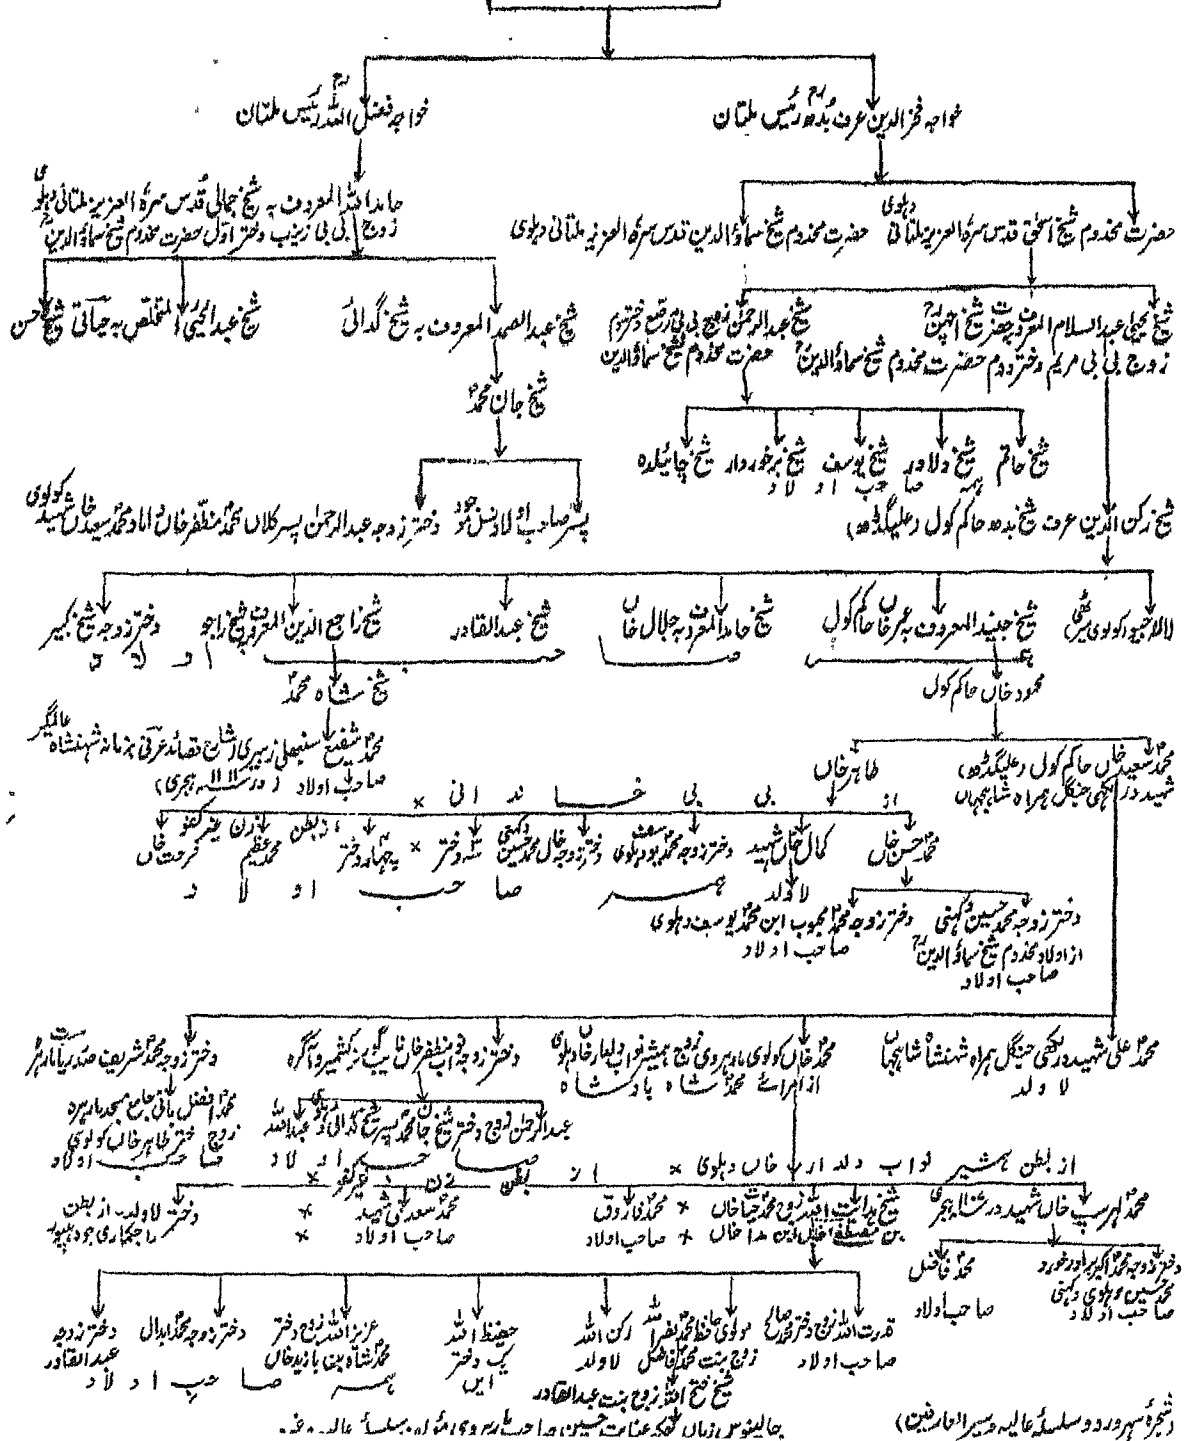 خواجہ فخر الدین عرف بڈھ رئیس ملتان
خواجہ فضل اللہ رئیس ملتان
حضرت مخدوم شیخ اسحٰق قدس سرہ العزیز ملتانی دہلوی
حضرت مخدوم شیخ سماؤ الدین قدس سرہ العزیز ملتانی دہلوی
حامد اللہ المعروف بہ شیخ جمالی قدس سرہ العزیز ملتانی دہلوی
زوج بی بی زینب دختر اول حضرت مخدوم شیخ سماؤ الدین
شیخ یحییٰ عبد السلام المعروف شیخ
زوج بی بی مریم دختر دوم حضرت مخدوم شیخ سماؤ الدین
شیخ عبد الرحمٰن زوج بی بی دختر سوم
حضرت مخدوم شیخ سماؤ الدین
شیخ عبد الصمد المعروف بہ شیخ گدائی
شیخ عبد الحیی المتخلص بہ حیاتی
شیخ حسن
شیخ جان محمد
شیخ حاتم
شیخ دلاور
شیخ یوسف
شیخ برخوردار
شیخ چائلدہ
ہمہ صاحب اولاد
پسر صاحب اولاد نسل موجود
دختر زوجہ عبد الرحمٰن پسر کلاں محمد مظفر خاں داماد محمد سعید خاں شہید کولوی
شیخ رکن الدین عرف شیخ بدھ حاکم کول (علیگڈھ)
شیخ جنید المعروف بہ عمر خاں حاکم کول
شیخ حامد المعروف بہ جلال خاں
شیخ عبد القادر
شیخ راجع الدین المعروف شیخ راجو
دختر زوجہ شیخ کبیر
ہمہ صاحب اولاد
محمود خاں حاکم کول
شیخ شاہ محمد
محمد شفیع سنبھلی زبیری شارح قصائد عرفی بزمانہ شہنشاہ عالمگیر
صاحب اولاد (در ۱۱۱۱ ہجری)
محمد سعید خاں حاکم کول (علیگڈھ)
شہید در جنگل ہمراہ شاہجہاں
طاہر خاں
از بی بی خاندانی ×
از بطن زن غیر کفو
محمد حسن خاں
کمال خاں شہید
لاولد
دختر زوجہ محمد یوسف دہلوی
دختر زوجہ خال محمد حسین دکھنی
سہ دختر ×
چہار دختر
محمد عظیم
فرحت خاں
ہمہ صاحب اولاد
دختر زوجہ محمد حسین دکھنی
از اولاد مخدوم شیخ سماؤ الدین
صاحب اولاد
دختر زوجہ محمد محبوب ابن محمد یوسف دہلوی
صاحب اولاد
محمد علی شہید در جنگل ہمراہ شہنشاہ شاہجہاں
لاولد
محمد خاں کولوی مارہروی زوج ہمشیر نواب دلدار خاں دہلوی
از امرائے محمد شاہ بادشاہ
دختر زوجہ نواب مظفر خاں نائب گورنر کشمیر و آگرہ
دختر زوجہ محمد شریف مارہرہ
عبد الرحمٰن زوج دختر شیخ جان محمد پسر شیخ گدائی دہلوی
عبد اللہ
صاحب اولاد
محمد افضل بانی جامع مسجد مارہرہ
زوج دختر طاہر خاں کولوی
صاحب اولاد
از بطن ہمشیر نواب دلدار خاں دہلوی ×
از بطن زن غیر کفو ×
خاں شہید در ہجری
شیخ ہدایت اللہ زوج محمد حیات خاں
بن مصطفیٰ خاں ابن ہدا خاں
× محمد فاروق
× صاحب اولاد
محمد سعد شہید
صاحب اولاد
دختر لاولد از بطن
راجکماری جودھپور
دختر زوجہ محمد اکبر برادر خورد
محمد حسین دہلوی دکھنی
صاحب اولاد
محمد فاضل
صاحب اولاد
قدرت اللہ زوج دختر محمد صالح
صاحب اولاد
مولوی حافظ محمد نصر اللہ
زوج بنت محمد فاضل
رکن اللہ
لاولد
حفیظ اللہ
یک دختر
عزیز اللہ زوج دختر
محمد شاہ بن بازید خاں
دختر زوجہ محمد ابدال
دختر زوجہ
عبد القادر
ہمہ صاحب اولاد
شیخ فتح اللہ زوج بنت عبد القادر
جالینوس زماں عنایت حسین صاحب مارہروی
(شجرۂ سہروردو سلسلۂ عالیہ و سیر العارفین)